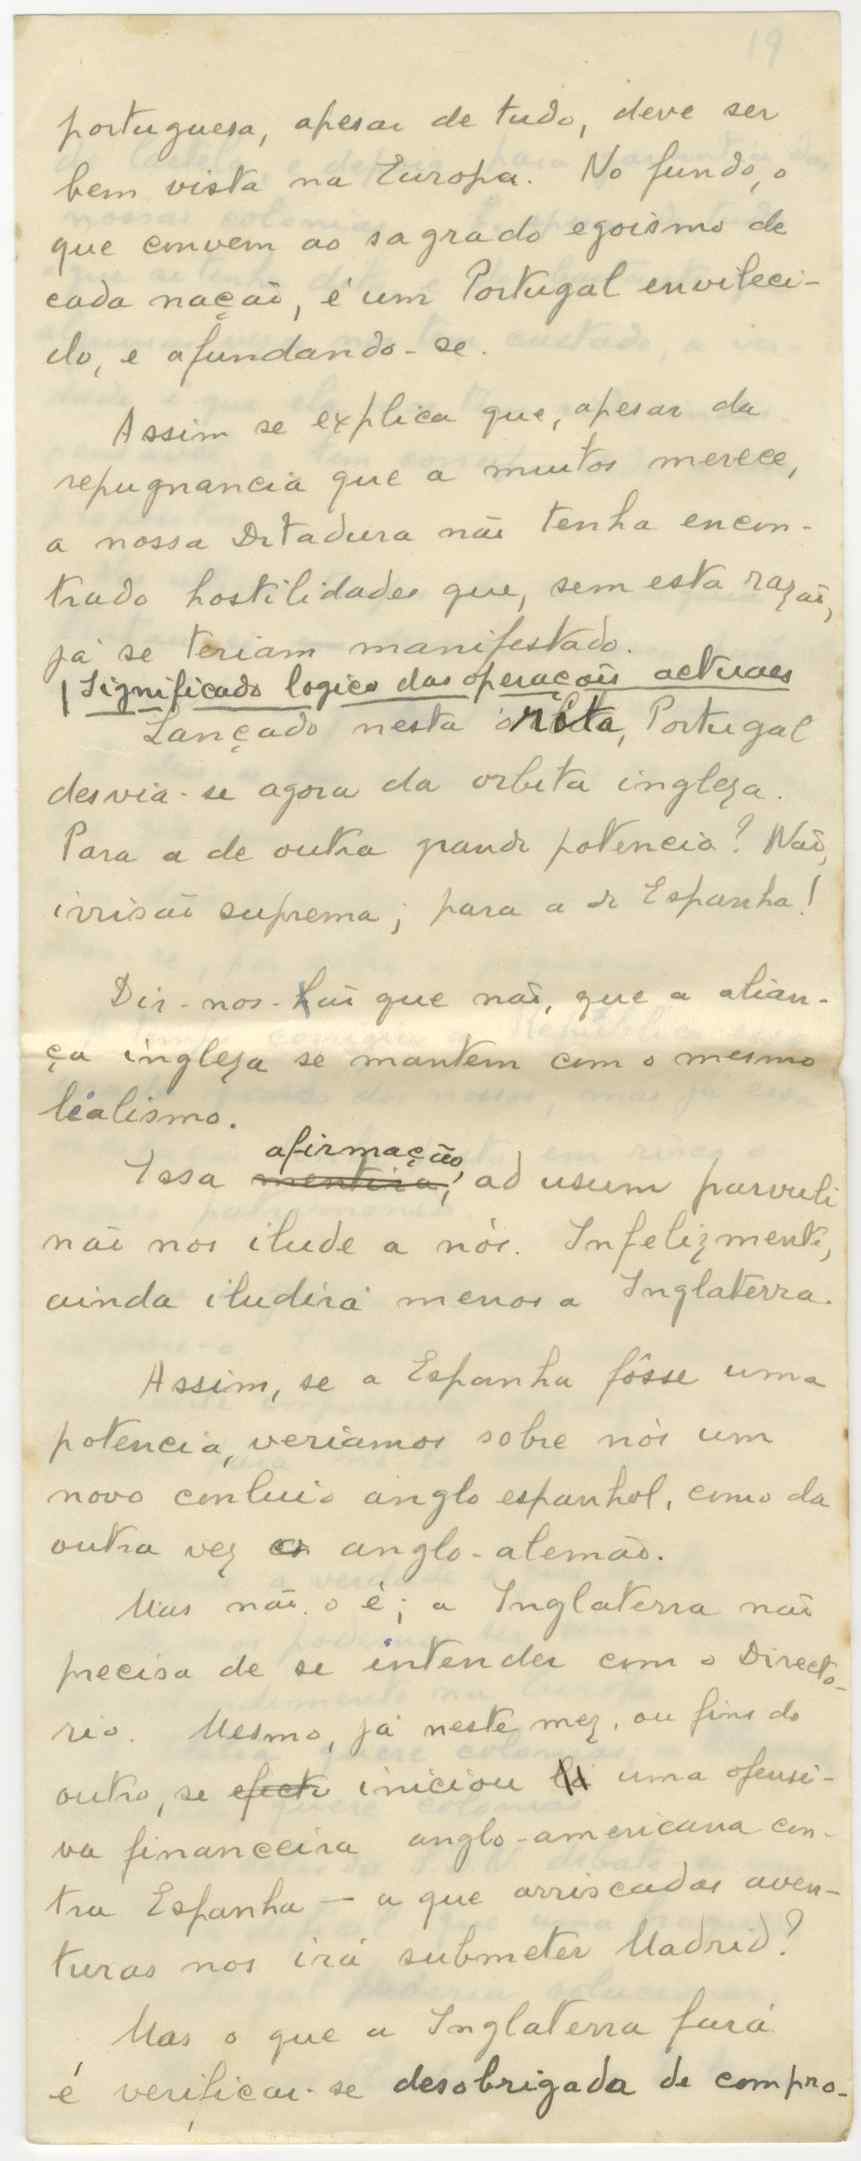 19
portuguesa, apesar de tudo, deve ser
bem vista na Europa. No fundo, o
que convem ao sagrado egoismo de
cada nação, é um Portugal envileci-
do, e afundando-se.
Assim se explica que, apesar da
repugnancia que a muitos merece,
a nossa Ditadura não tenha encon-
trado hostilidades que, sem esta razão,
já se teriam manifestado.
Significado logico das operações actuaes
Lançado nesta rota, Portugal
desvia-se agora da orbita ingleza.
Para a de outra grande potencia? Não,
irrisão suprema; para a de Espanha!
Dir-nos-hão que não, que a alian-
ça ingleza se mantem com o mesmo
lealismo.
afirmação,
Essa mentira, ad usum parvuli
não nos ilude a nós. Infelizmente,
ainda iludirá menos a Inglaterra.
Assim, se a Espanha fôsse uma
potencia, veriamos sobre nós um
novo conluio anglo espanhol, como da
outra vez o anglo-alemão.
Mas não o é; a Inglaterra não
precisa de se intender com o Directo-
rio. Mesmo, já neste mez, ou fins do
outro, se efectu iniciou lá uma ofensi-
va financeira anglo-americana con-
tra Espanha — a que arriscadas aven-
turas nos irá submeter Madrid?
Mas o que a Inglaterra fará
é verificar-se desobrigada de compro-